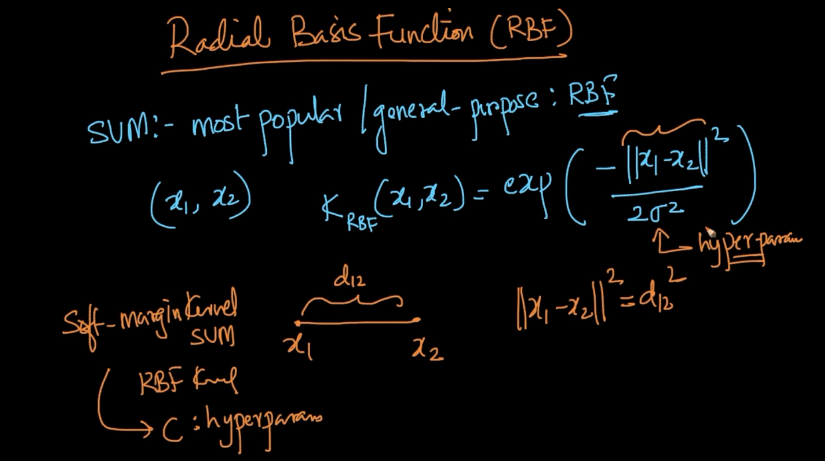 Radial Basis Function (RBF)
SVM:- most popular / general-purpose : RBF
(x₁, x₂) K_RBF(x₁, x₂) = exp( -||x₁-x₂||² / 2σ² )
hyperparam
d₁₂
||x₁-x₂||² = d₁₂²
Soft-margin Kernel
SVM
x₁ x₂
RBF Kernel
C : hyperparam